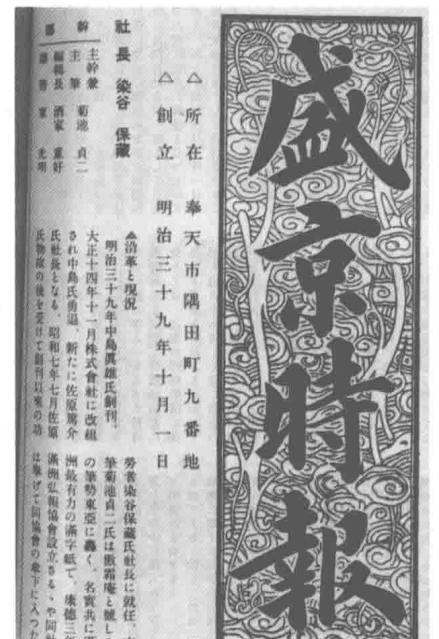 盛京時報
△所在 奉天市隅田町九番地
△創立 明治三十九年十月一日
社長 染谷 保藏
幹部
主幹兼
主筆 菊池 貞二
編輯長 酒家 重好
▲沿革と現況
明治三十九年中島眞雄氏創刊、
大正十四年十一月株式會社に改組
され中島氏勇退、新たに佐原篤介
氏社長となる。昭和七年七月佐原
氏物故の後を受けて創刊以來の功
勞者染谷保藏氏社長に就任、
筆菊池貞二氏は傲霜庵と號し
の筆勢東亞に轟く、名實共に
洲最有力の滿字紙で、康德三
滿洲弘報協會設立さるゝや同社
は擧げて同協會の傘下に入つた